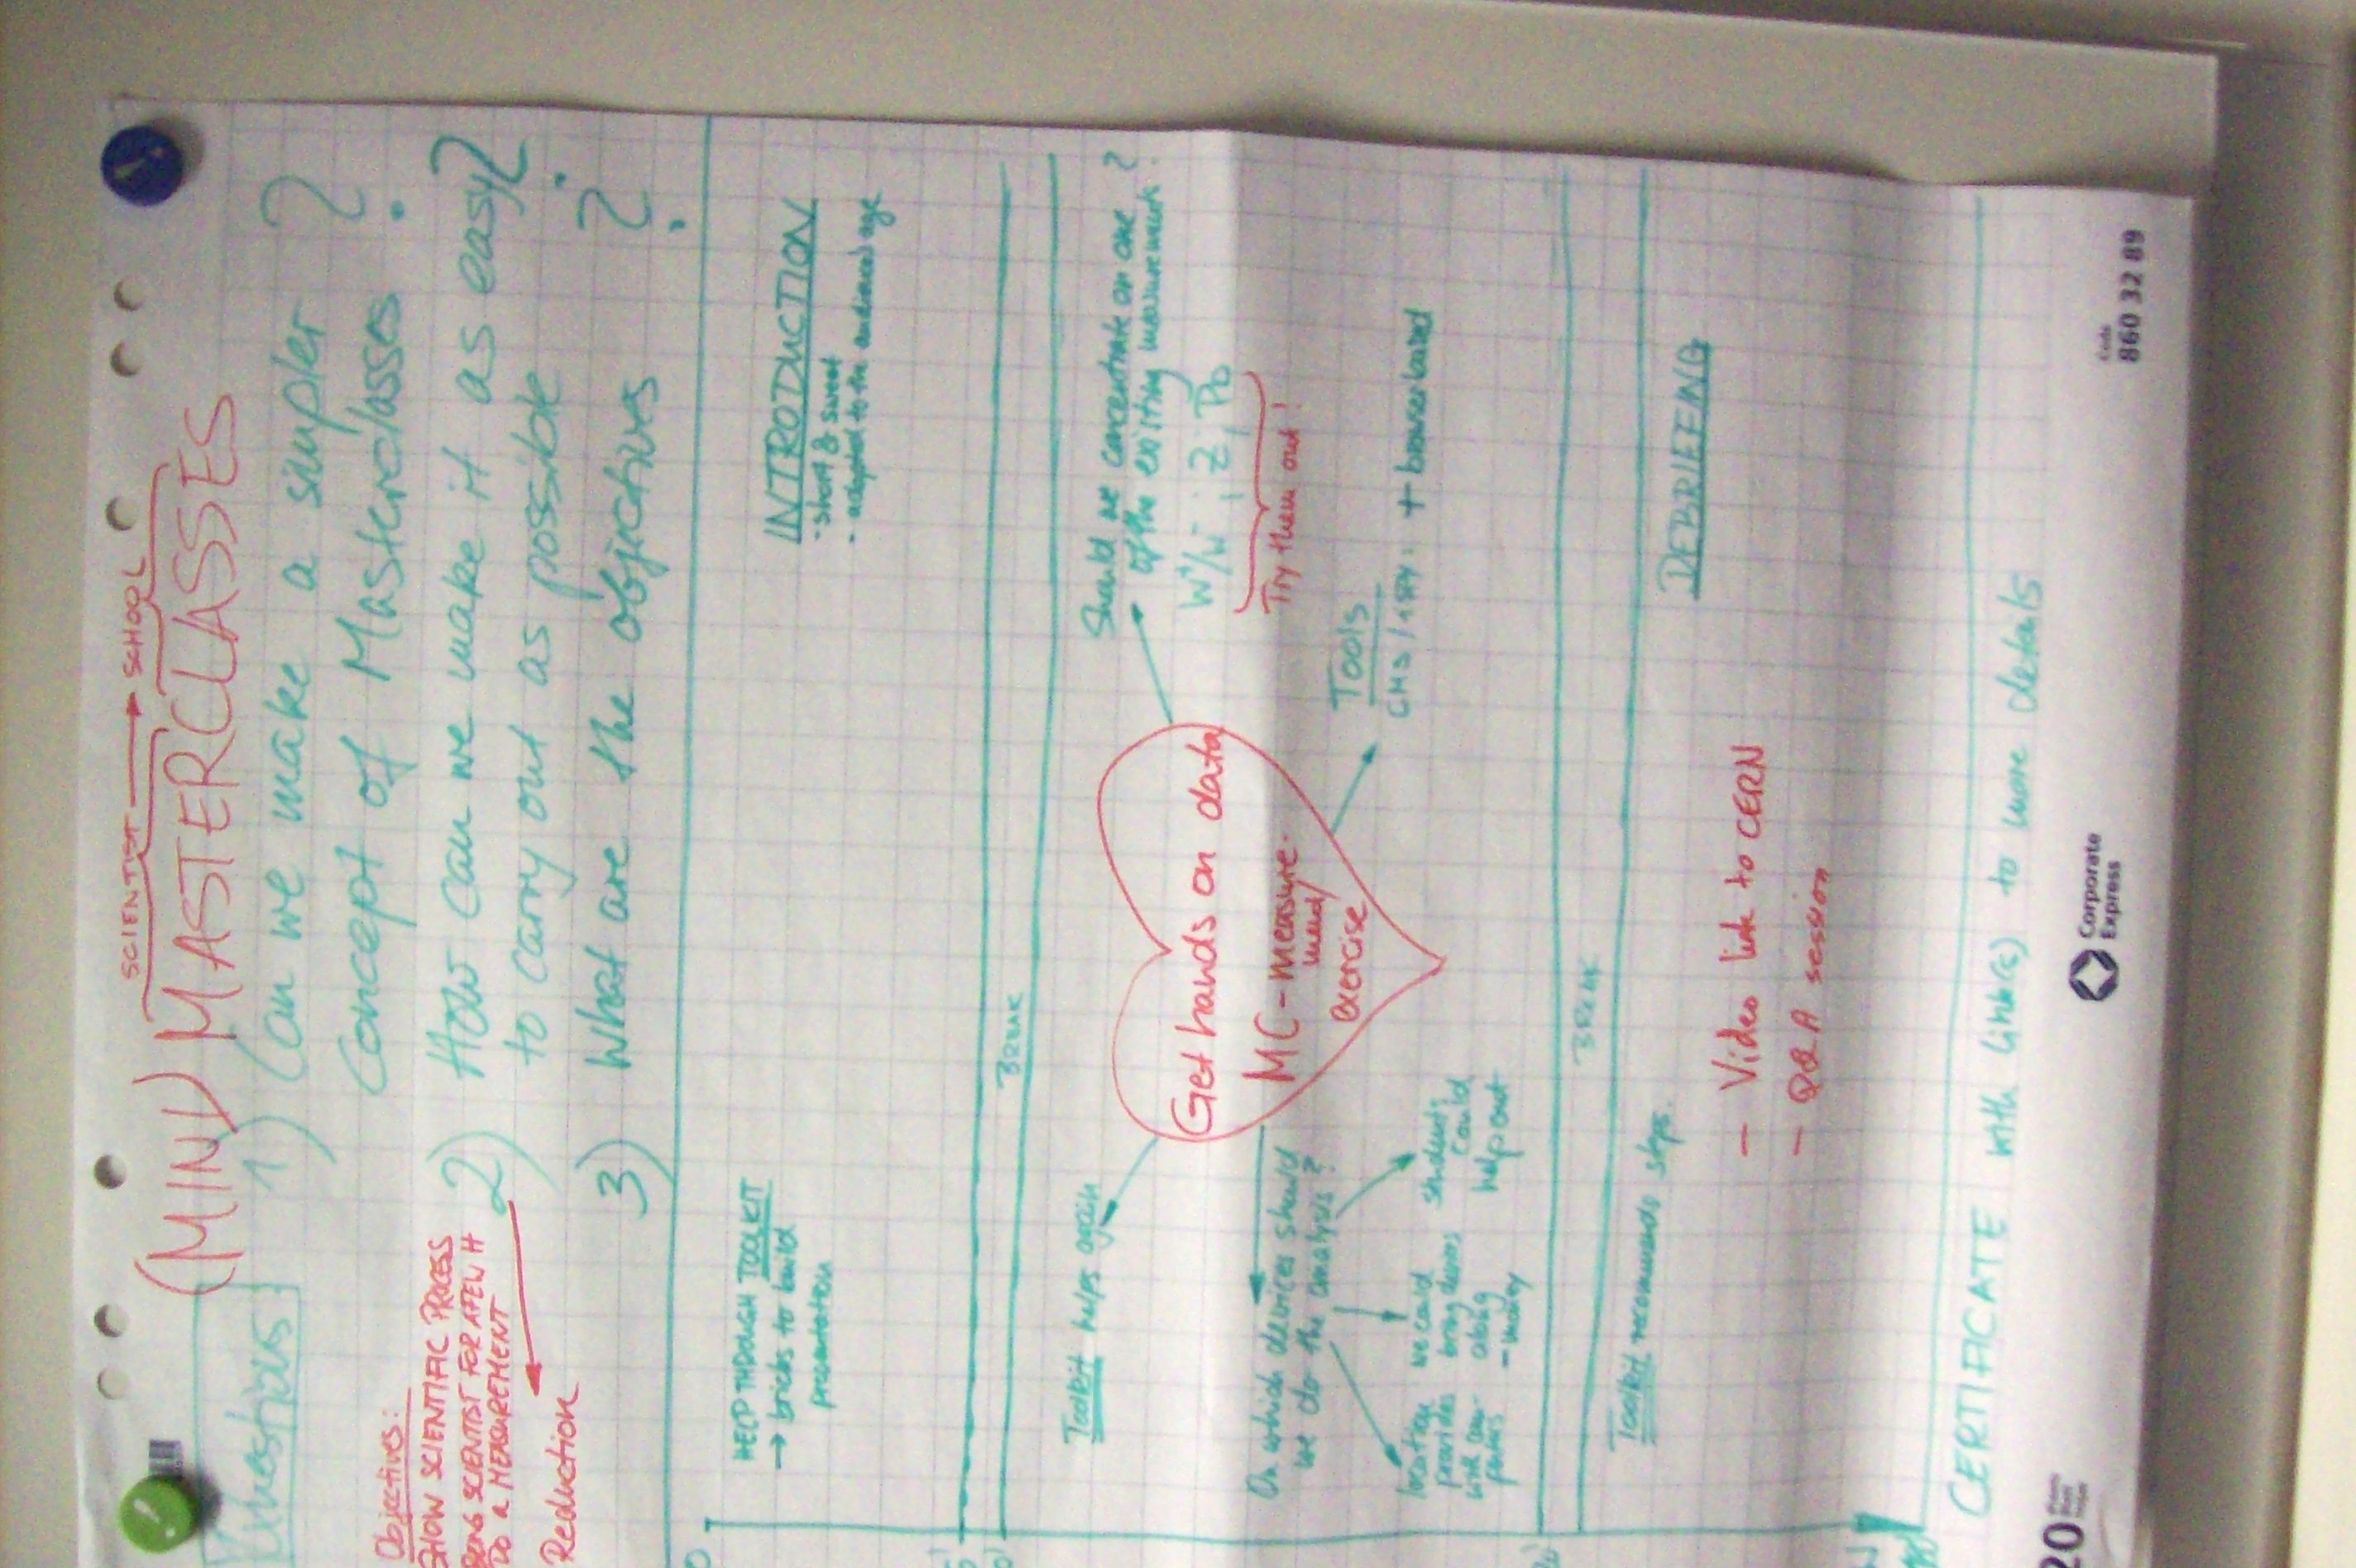 SCIENTIST → SCHOOL
(MINI) MASTERCLASSES
Questions
1) Can we make a simpler
Concept of Masterclasses ?
2) How can we make it as easy
to carry out as possible ?
3) What are the objectives ?
Objectives:
SHOW SCIENTIFIC PROCESS
BEING SCIENTIST FOR A FEW H
DO A MEASUREMENT
Reduction
HELP THROUGH TOOLKIT
→ bricks to build
presentation
INTRODUCTION
- short & sweet
- adapted to the audience/age
BREAK
Toolkit helps again
Get hands on data
MC-measure-
ment/
exercise
Should we concentrate on one ?
of the existing measurements !
W⁺/W⁻, Z, Pb
Try them out!
Tools
CMS / iSpy: + browserbased
On which devices should
we do the analysis?
location
provides
with com-
puters
we could
bring devices
along
- money
students
could
help out
BREAK
Toolkit recommends steps.
DEBRIEFING
- Video link to CERN
- Q&A session
CERTIFICATE with link(s) to more details
20
Corporate
Express
Code
860 32 89